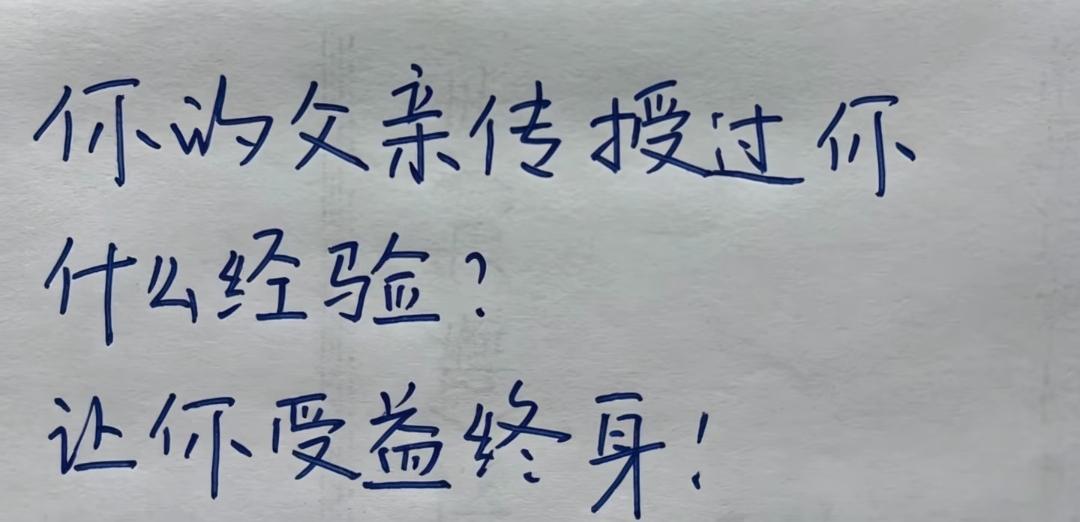 你的父亲传授过你
什么经验?
让你受益终身!